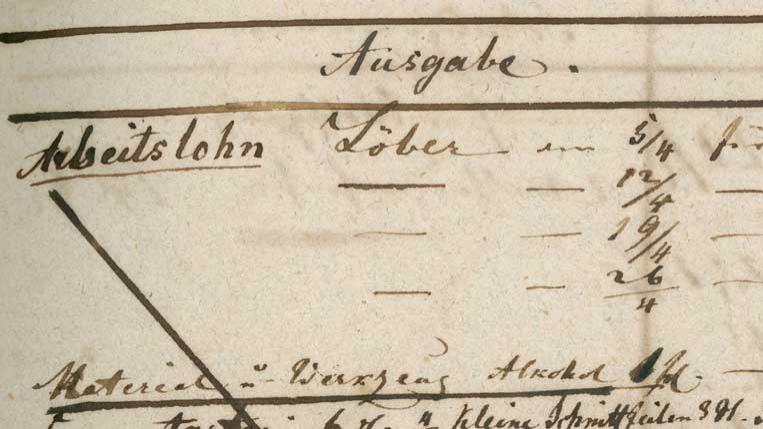 Ausgabe.
Arbeitslohn Löber am 5/4 für
— — 12/4 —
— — 19/4 —
— — 26/4
Material u Werkzeug Alkohol 1 —
6 " kleine Schnittfeilen 3